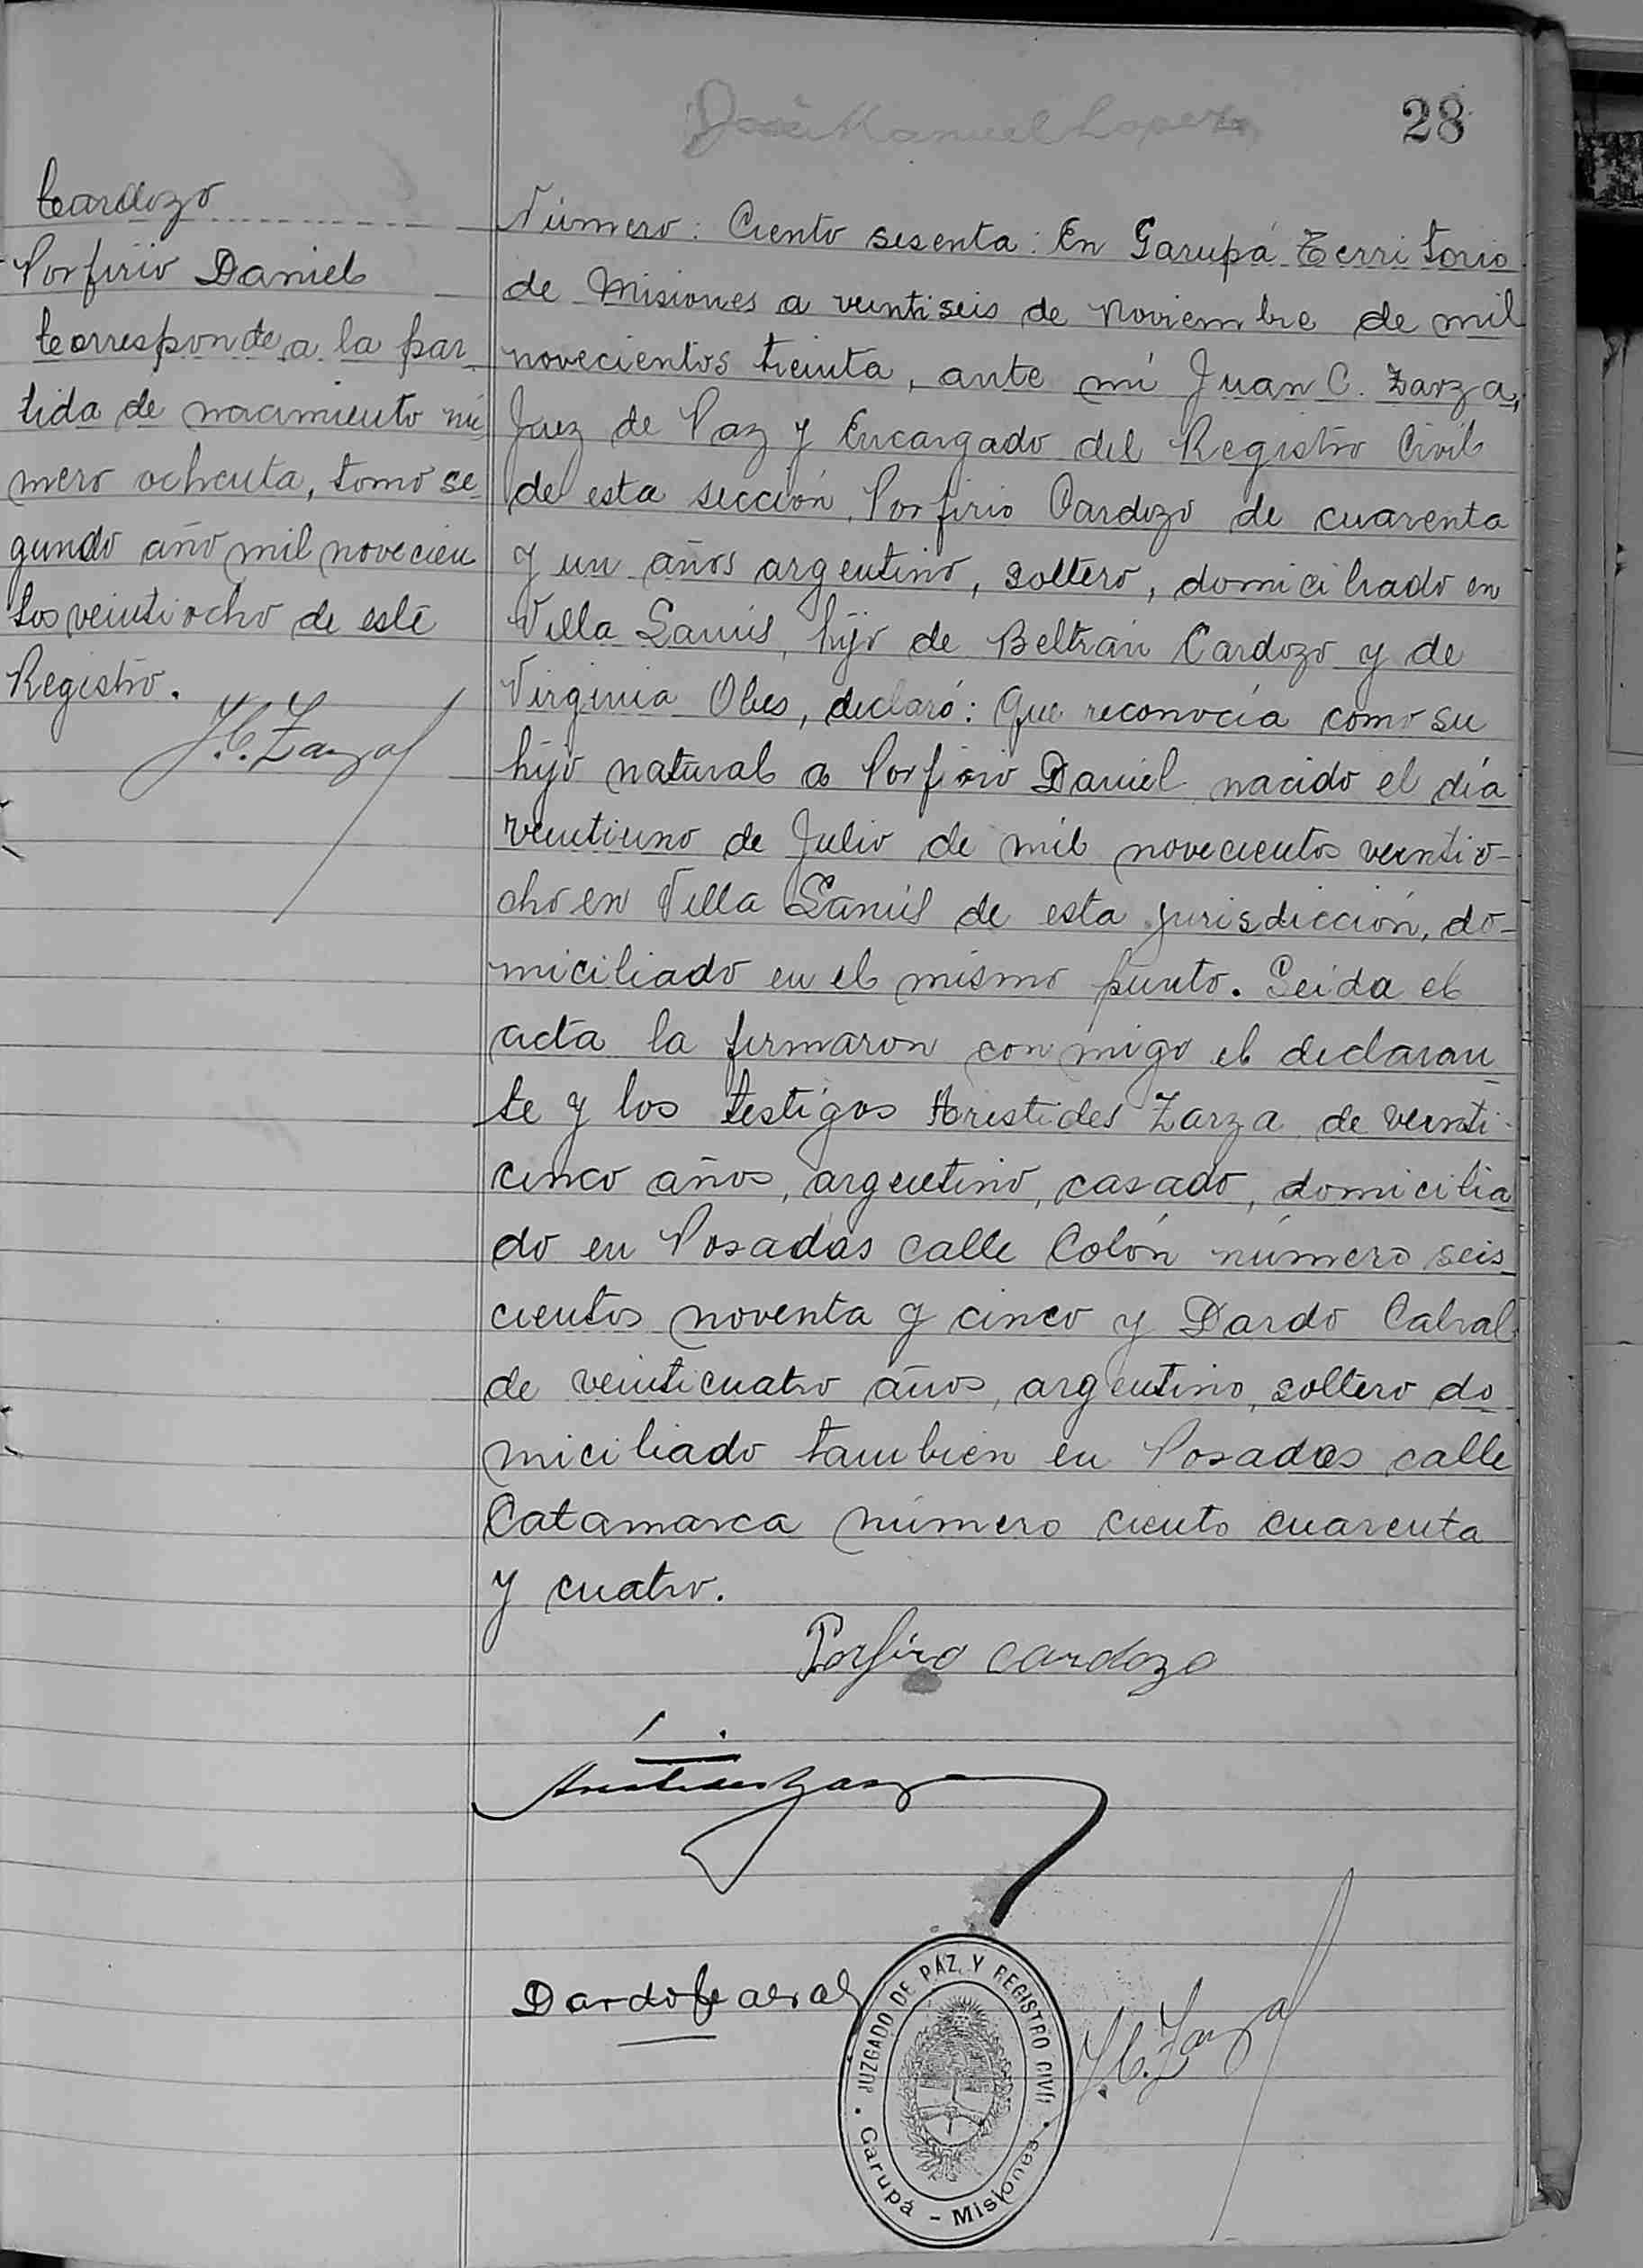 José Manuel Lopez
28
Cardozo
Porfirio Daniel
Corresponde a la par
tida de nacimiento nú
mero ochenta, tomo se
gundo año mil novecien
tos veintiocho de este
Registro.
J.C. Zarza
Número: Ciento sesenta: En Garupá Territorio
de Misiones a veintiseis de Noviembre de mil
novecientos treinta, ante mí Juan C. Zarza,
Juez de Paz y Encargado del Registro Civil
de esta sección, Porfirio Cardozo de cuarenta
y un años argentino, soltero, domiciliado en
Villa Lanús, hijo de Beltrán Cardozo y de
Virginia Obes, declaró: Que reconocía como su
hijo natural a Porfirio Daniel nacido el día
veintiuno de Julio de mil novecientos veintio-
cho en Villa Lanús de esta jurisdicción, do-
miciliado en el mismo punto. Leida el
acta la firmaron conmigo el declaran
te y los testigos Aristides Zarza de veinti-
cinco años, argentino, casado, domicilia
do en Posadas calle Colón número seis
cientos noventa y cinco y Dardo Cabral
de veinticuatro años, argentino, soltero do
miciliado tambien en Posadas calle
Catamarca número ciento cuarenta
y cuatro.
Porfirio Cardozo
Aristides Zarza
Dardo Cabral
JUZGADO DE PAZ Y REGISTRO CIVIL
Garupá - Misiones
J.C. Zarza